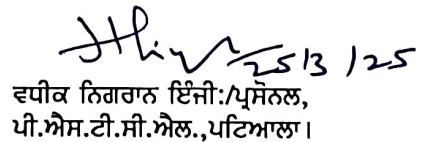 25/3/25
ਵਧੀਕ ਨਿਗਰਾਨ ਇੰਜੀ:/ਪ੍ਰਸੋਨਲ,
ਪੀ.ਐਸ.ਟੀ.ਸੀ.ਐਲ.,ਪਟਿਆਲਾ।